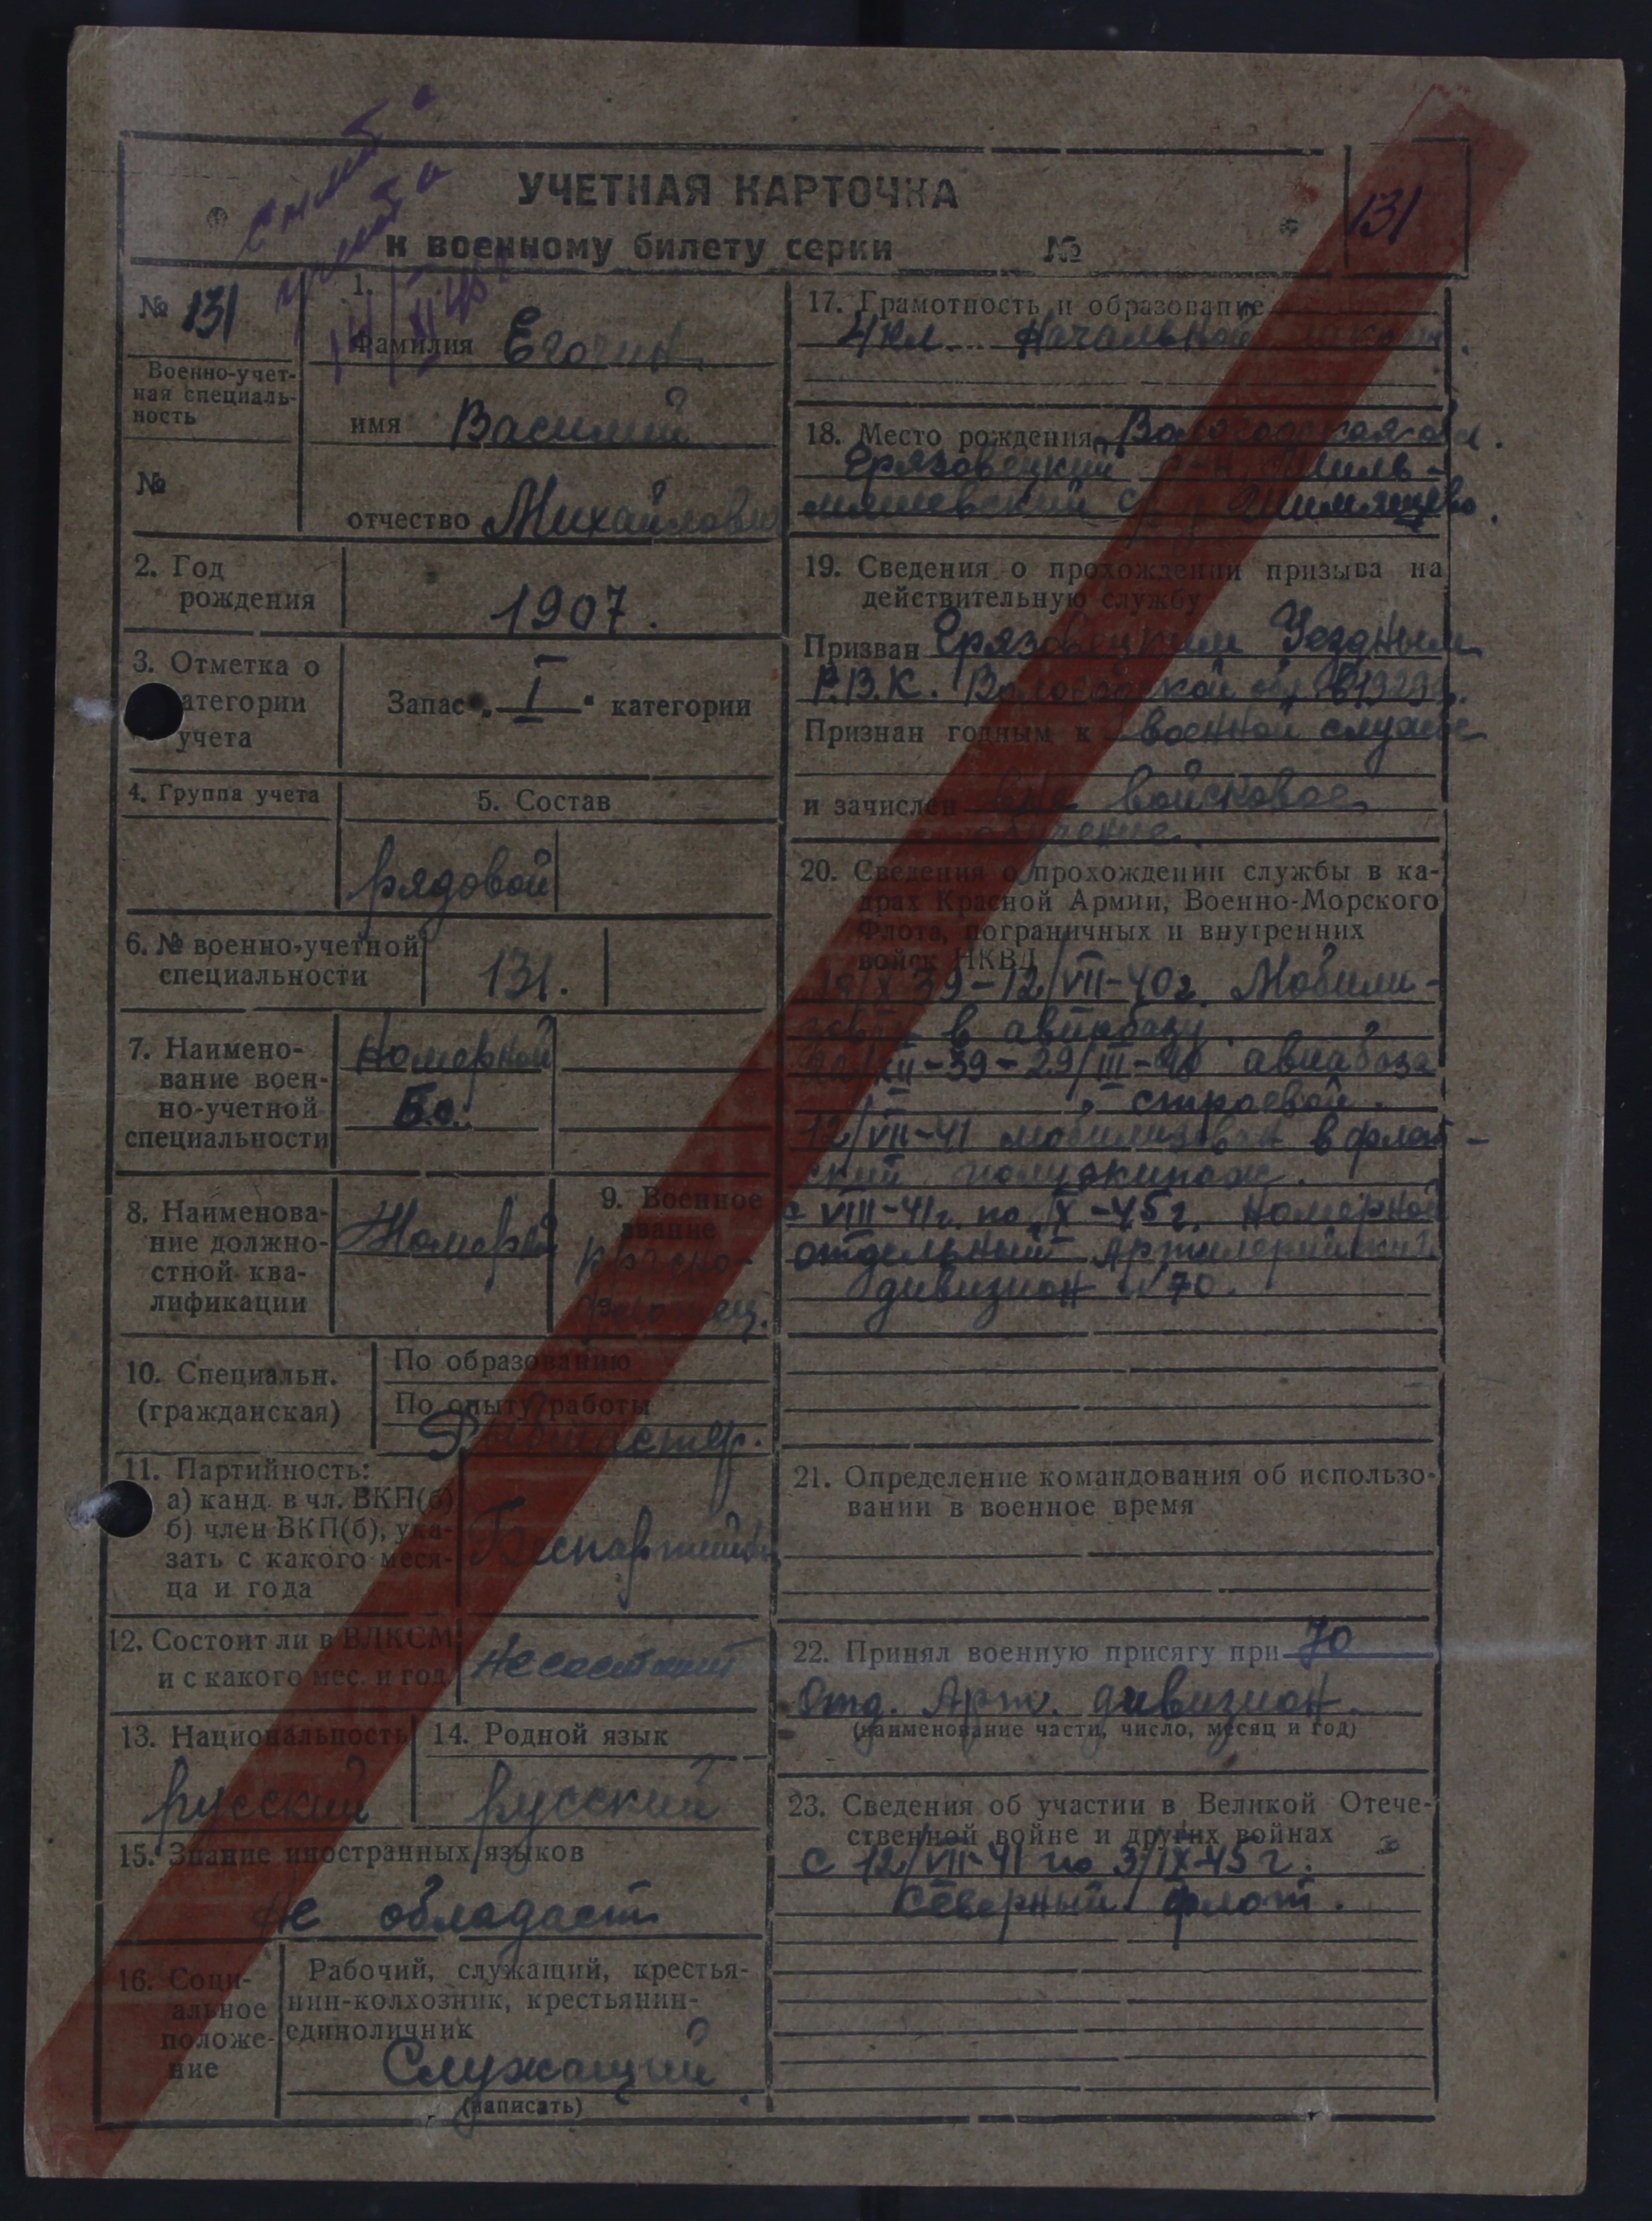 УЧЕТНАЯ КАРТОЧКА
к военному билету серии №
131
№ 131
Военно-учет-
ная специаль-
ность
№
1.
Фамилия Егочин
имя Василий
отчество Михайлович
2. Год
рождения
1907.
3. Отметка о
категории
учета
Запас „ I " категории
4. Группа учета
5. Состав
рядовой
6. № военно-учетной
специальности
131.
7. Наимено-
вание воен-
но-учетной
специальности
Номерной
8. Наименова-
ние должно-
стной ква-
лификации
9. Военное
звание
10. Специальн.
(гражданская)
По образованию
По опыту работы
11. Партийность:
а) канд. в чл. ВКП(б)
б) член ВКП(б), ука-
зать с какого меся-
ца и года
Беспартийный
12. Состоит ли в ВЛКСМ
и с какого мес. и год.
Не состоит
13. Национальность
русский
14. Родной язык
русский
15. Знание иностранных языков
не обладает
16. Соци-
альное
положе-
ние
Рабочий, служащий, крестья-
нин-колхозник, крестьянин-
единоличник
Служащий
(написать)
17. Грамотность и образование
4 кл. Начальной школы.
18. Место рождения Вологодская обл.
Грязовецкий р-н,
с/с д.
19. Сведения о прохождении призыва на
действительную службу
Призван Грязовецким Уездным
Р.В.К. Вологодской обл. в 1929г.
Признан годным к военной службе
и зачислен вне войсковое
обучение.
20. Сведения о прохождении службы в ка-
драх Красной Армии, Военно-Морского
Флота, пограничных и внутренних
войск НКВД
39-12/VII-40г. Мобили-
зован в автобазу
XII-39-29/III-40 авиабаза
строевой.
12/VII-41 мобилизован в флот-
ский полуэкипаж.
с VIII-41г. по IX-45г. Номерной
отдельный Артилерийский
дивизион №70.
21. Определение командования об использо-
вании в военное время
22. Принял военную присягу при 70
Отд. Арт. дивизион
(наименование части, число, месяц и год)
23. Сведения об участии в Великой Отече-
ственной войне и других войнах
С 12/VII-41 по 3/IX-45г.
Северный флот.